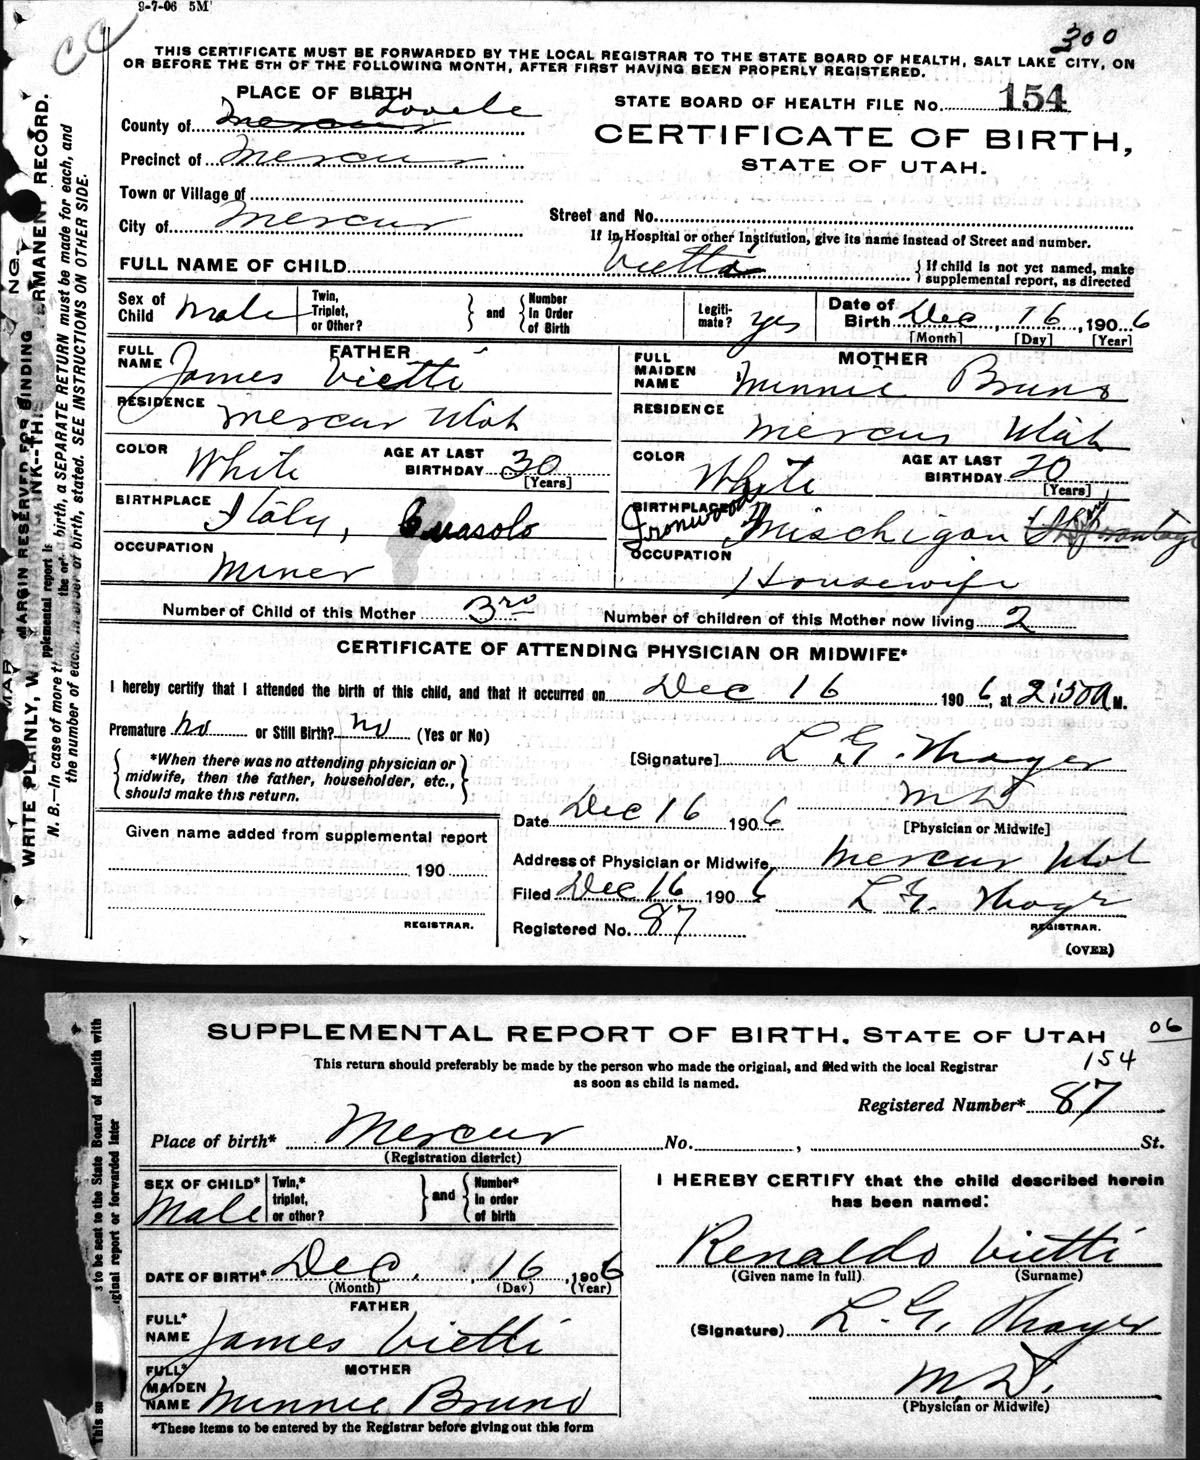 9-7-06 5M
CC
300
THIS CERTIFICATE MUST BE FORWARDED BY THE LOCAL REGISTRAR TO THE STATE BOARD OF HEALTH, SALT LAKE CITY, ON
OR BEFORE THE 5TH OF THE FOLLOWING MONTH, AFTER FIRST HAVING BEEN PROPERLY REGISTERED.
PLACE OF BIRTH
STATE BOARD OF HEALTH FILE No. 154
County of Mercur Tooele
CERTIFICATE OF BIRTH,
STATE OF UTAH.
Precinct of Mercur
Town or Village of
City of Mercur
Street and No.
If in Hospital or other Institution, give its name instead of Street and number.
FULL NAME OF CHILD Vietti
If child is not yet named, make
supplemental report, as directed
Sex of Child Male
Twin, Triplet, or Other?
and
Number In Order of Birth
Legiti-mate? yes
Date of Birth Dec, 16, 1906
[Month] [Day] [Year]
FATHER
FULL NAME James Vietti
MOTHER
FULL MAIDEN NAME Minnie Bruno
RESIDENCE Mercur Utah
RESIDENCE Mercur Utah
COLOR White
AGE AT LAST BIRTHDAY 30
[Years]
COLOR White
AGE AT LAST BIRTHDAY 20
[Years]
BIRTHPLACE Italy, Quasolo
BIRTHPLACE Ironwood Mischigan
OCCUPATION Miner
OCCUPATION Housewife
Number of Child of this Mother 3rd
Number of children of this Mother now living 2
CERTIFICATE OF ATTENDING PHYSICIAN OR MIDWIFE*
I hereby certify that I attended the birth of this child, and that it occurred on Dec 16 1906, at 2:50 A M.
Premature no or Still Birth? no (Yes or No)
*When there was no attending physician or
midwife, then the father, householder, etc.,
should make this return.
[Signature] L. G. Thayer
M D
[Physician or Midwife]
Date Dec 16 1906
Given name added from supplemental report
190
REGISTRAR.
Address of Physician or Midwife, Mercur Utah
Filed Dec 16 1906 L. G. Thayer
REGISTRAR.
Registered No. 87
(OVER)
MARGIN RESERVED FOR BINDING
WRITE PLAINLY, INK--THIS ERMANENT RECORD.
N. B.—In case of more birth, a SEPARATE RETURN must be made for each, and
the number of each, in order of birth, stated. SEE INSTRUCTIONS ON OTHER SIDE.
SUPPLEMENTAL REPORT OF BIRTH, STATE OF UTAH
06
154
This return should preferably be made by the person who made the original, and filed with the local Registrar
as soon as child is named.
Registered Number* 87
Place of birth* Mercur No. , St.
(Registration district)
SEX OF CHILD* Male
Twin,* triplet, or other?
and
Number* in order of birth
I HEREBY CERTIFY that the child described herein
has been named:
Renaldo Vietti
(Given name in full) (Surname)
DATE OF BIRTH* Dec. 16, 1906
(Month) (Day) (Year)
FATHER
FULL* NAME James Vietti
(Signature) L. G. Thayer
MOTHER
FULL* MAIDEN NAME Minnie Bruno
M.D.
(Physician or Midwife)
*These items to be entered by the Registrar before giving out this form
to be sent to the State Board of Health with
ginal report or forwarded later